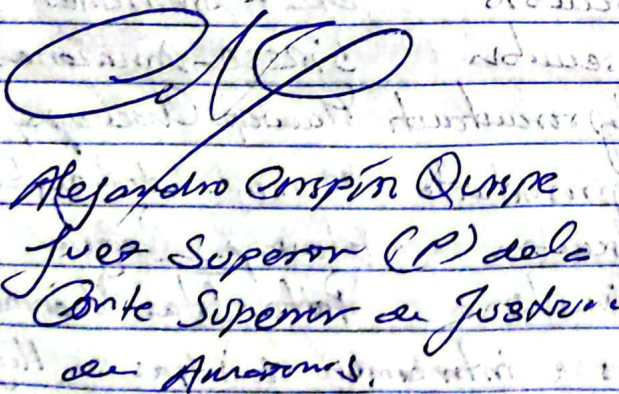 Alejandro Crispín Quispe
Juez Superior (P) de la
Corte Superior de Justicia
de Amazonas.